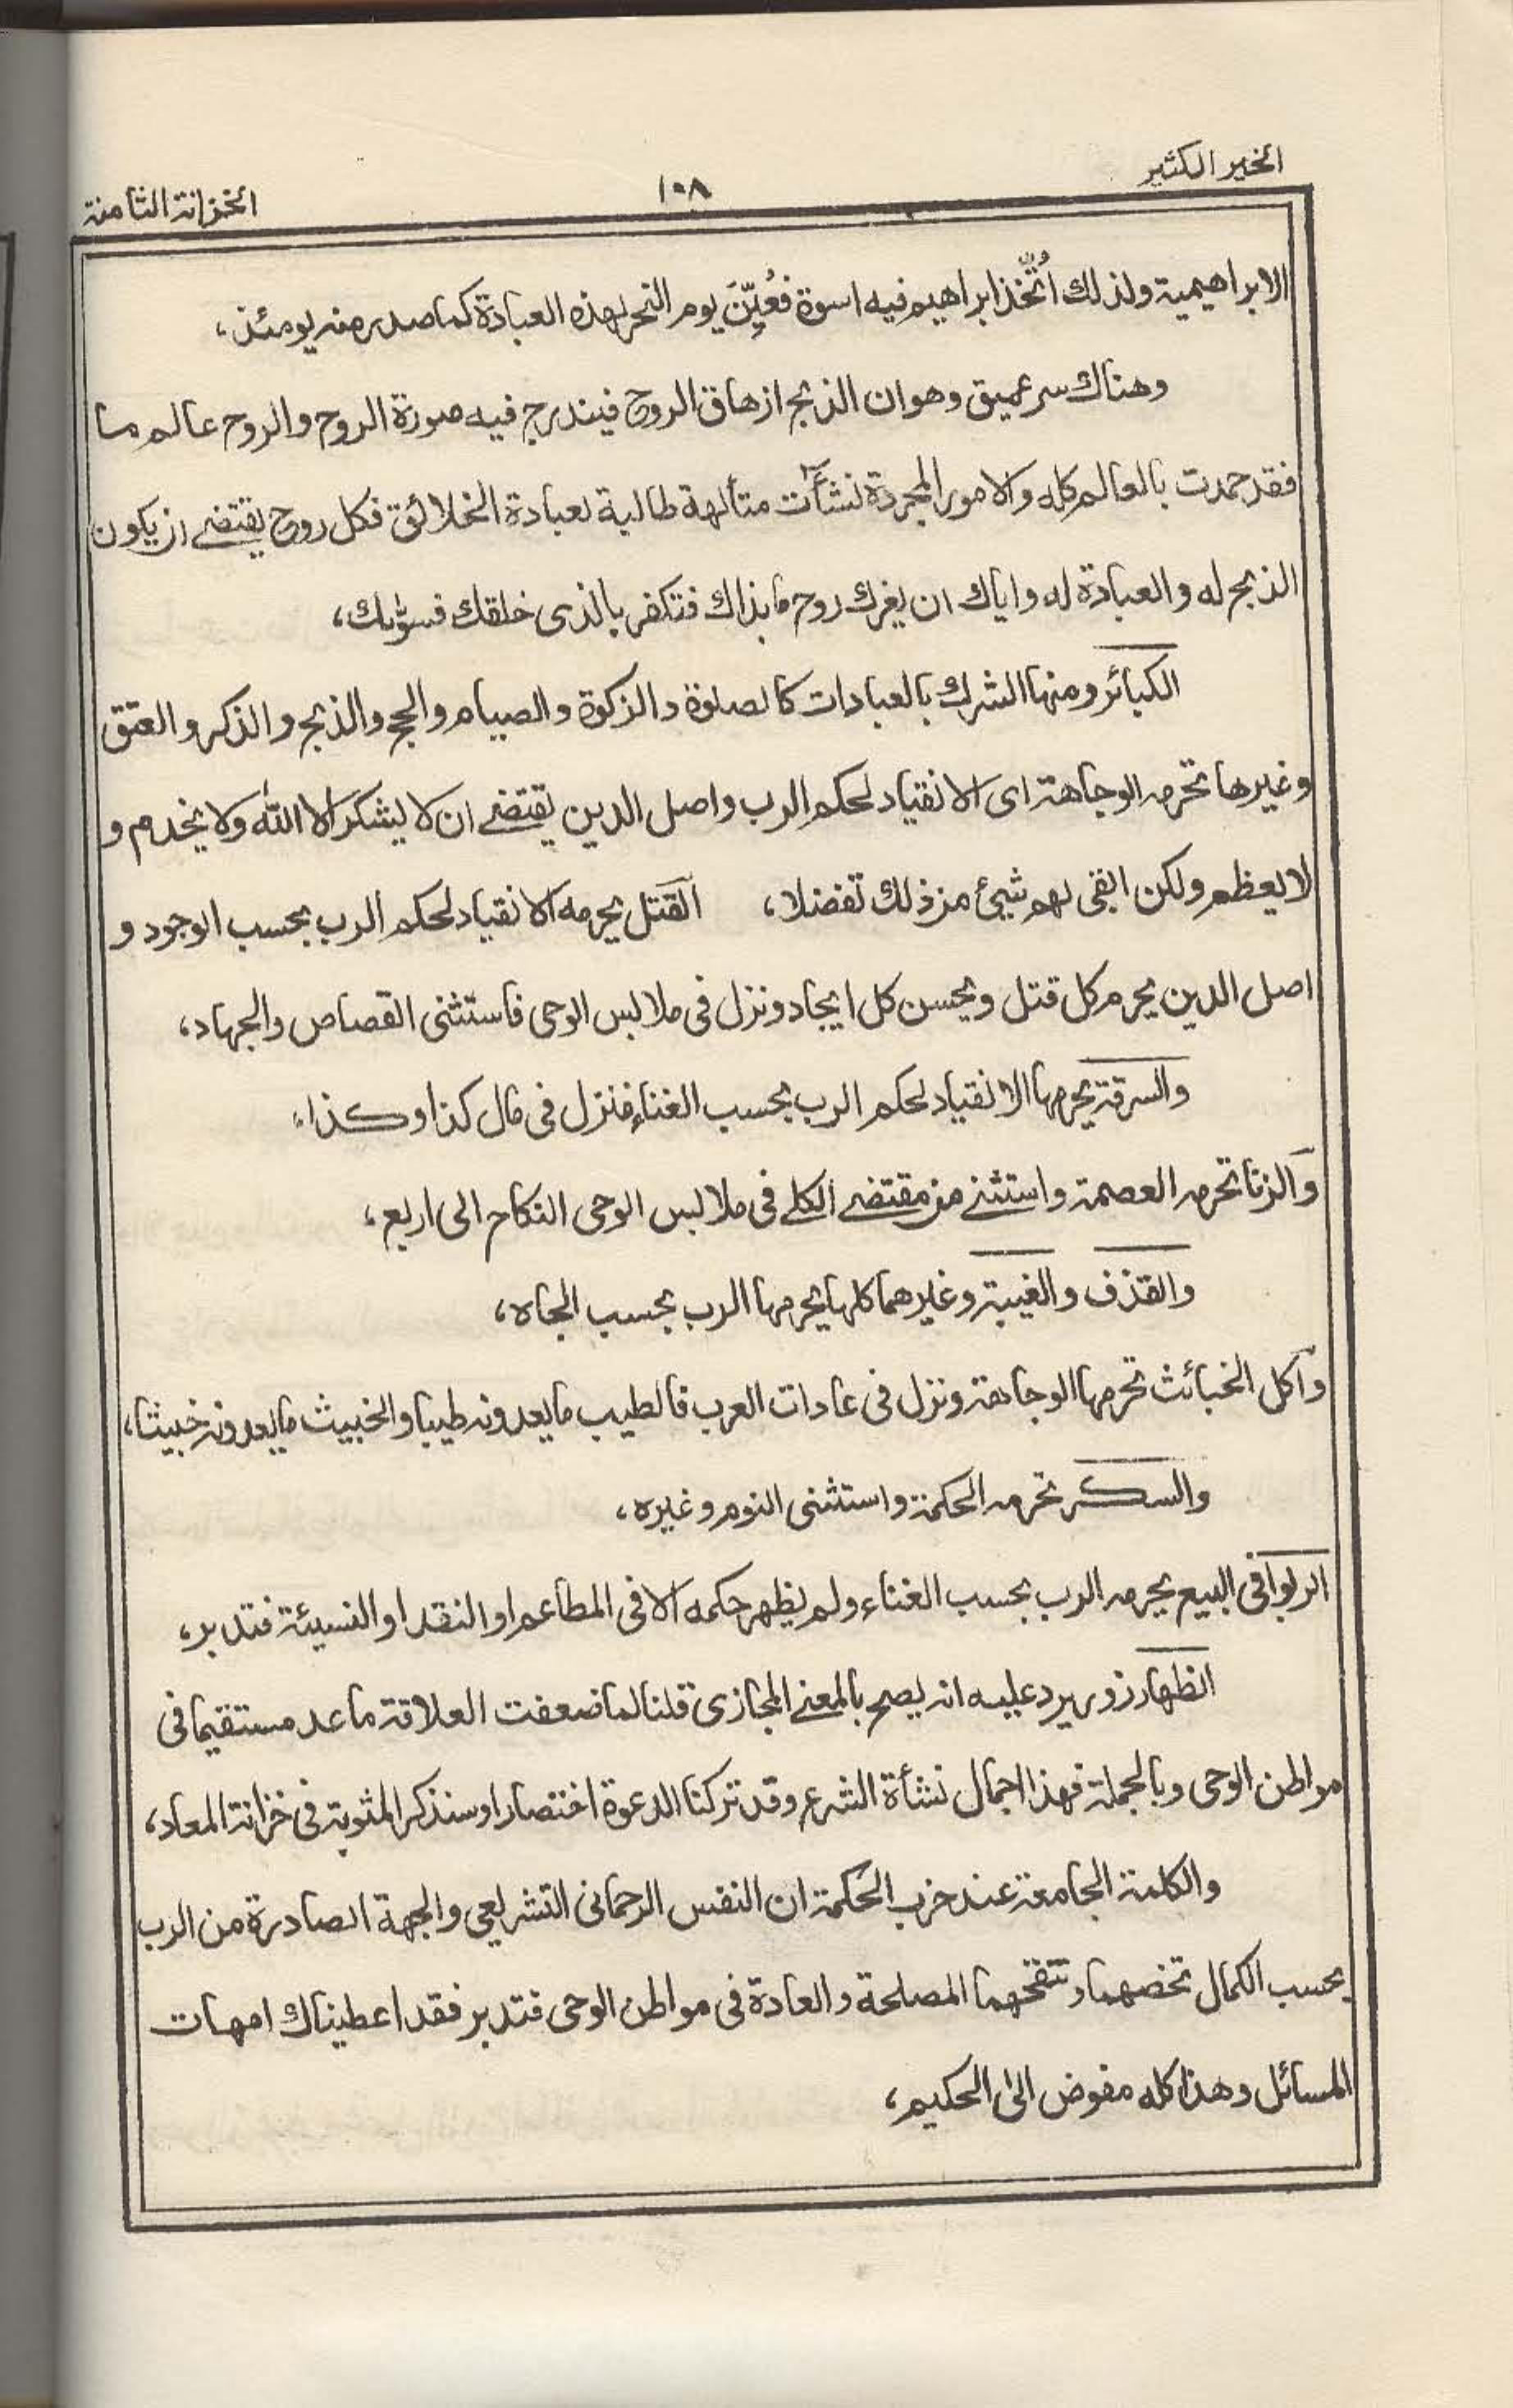 الخير الكثير
١٠٨
الخزانة الثامنة
الابراهيمية ولذلك اُتُّخذ ابراهيم فيه اسوة فعُيِّنَ يوم النحر لهذه العبادة كما صدر منه يومئذ،
وهناك سر عميق وهو ان الذبح ازهاق الروح فيندرج فيه صورة الروح والروح عالم ما
فقد حمدت بالعالم كله والامور المجردة نشأت متألهة طالبة لعبادة الخلائق فكل روح يقتضے ان يكون
الذبح له والعبادة له واياك ان يغرك روح ما بذاك فتكفر بالذى خلقك فسوّٰىك،
الكبائر ومنها الشرك بالعبادات كالصلوة والزكوة والصيام والحج والذبح والذكر والعتق
وغيرها تحرمه الوجاهة اى الانقياد لحكم الرب واصل الدين يقتضے ان لا يشكر الا الله ولا يخدم و
لا يعظم ولكن ابقى لهم شيئ من ذلك تفضلا، القتل يحرمه الانقياد لحكم الرب بحسب الوجود و
اصل الدين يحرم كل قتل ويحسن كل ايجاد ونزل فى ملابس الوحى فاستثنى القصاص والجهاد،
والسرقة يحرمها الانقياد لحكم الرب بحسب الغناء فنزل فى مال كذا وكذا،
والزنا تحرمه العصمة واستثنے من مقتضے الكلے فى ملابس الوحى النكاح الى اربع،
والقذف والغيبة وغيرهما كلها يحرمها الرب بحسب الجاه،
واكل الخبائث تحرمها الوجاهة ونزل فى عادات العرب فالطيب ما يعدونه طيبا والخبيث ما يعدونه خبيثا،
والسكر تحرمه الحكمة واستثنى النوم وغيره،
الربوا فى البيع يحرمه الرب بحسب الغناء ولم يظهر حكمه الا فى المطاعم او النقد او النسيئة فتدبر،
الظهار زور يرد عليه انه يصح بالمعنے المجازى قلنا لما ضعفت العلاقة ما عد مستقيما فى
مواطن الوحى وبالجملة فهذا اجمال نشأة الشرع وقد تركنا الدعوة اختصارا وسنذكر المثوبة فى خزانة المعاد،
والكلمة الجامعة عند حزب الحكمة ان النفس الرحمانى التشريعي والجهة الصادرة من الرب
بحسب الكمال تخصهما و المصلحة والعادة فى مواطن الوحى فتدبر فقد اعطيناك امهات
المسائل وهذا كله مفوض الى الحكيم،